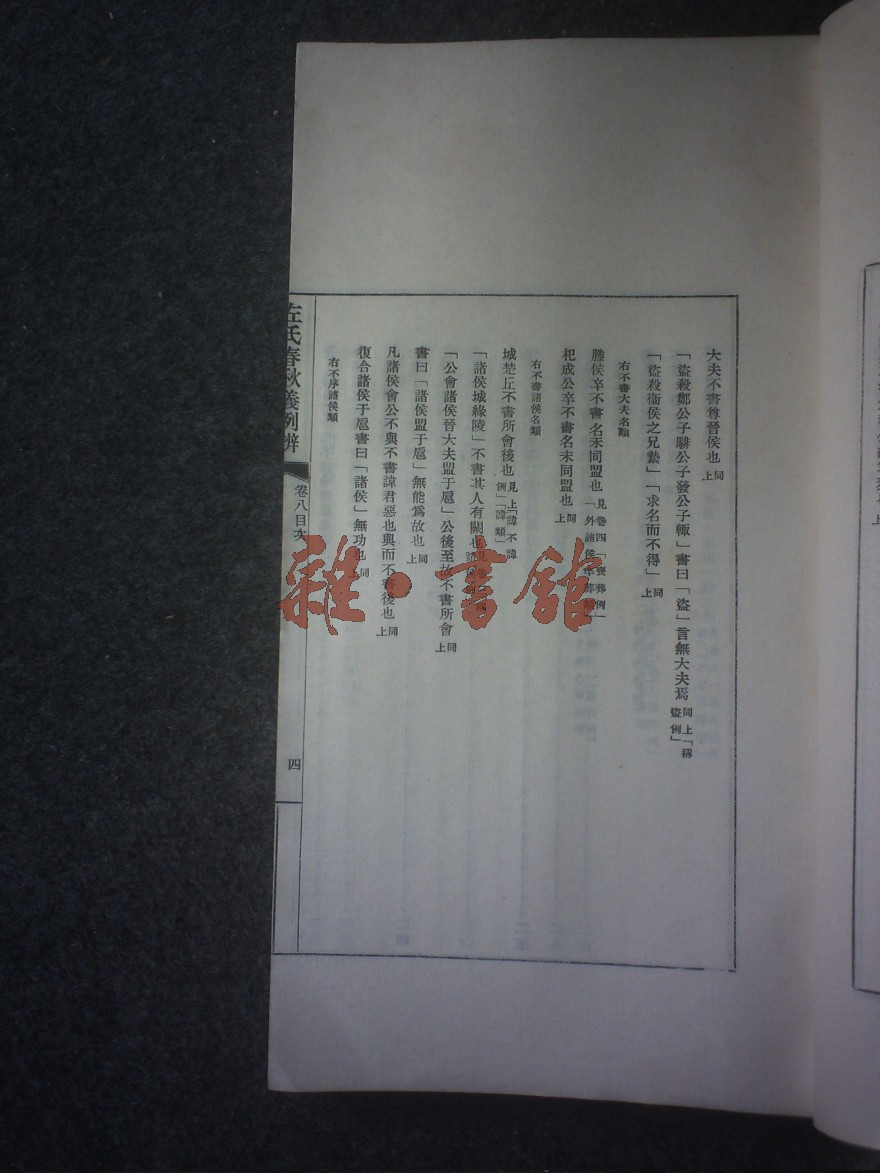 大夫不書尊晉侯也同上
「盜殺鄭公子騑公子發公子輒」書曰「盜」言無大夫焉同上「稱盜例」
「盜殺衞侯之兄縶」「求名而不得」同上
右不書大夫名類
滕侯卒不書名未同盟也見卷四「喪葬例」「外諸侯卒葬類」
杞成公卒不書名未同盟也同上
右不書諸侯名類
城楚丘不書所會後也見上「諱不諱例」「諱類」
「諸侯城緣陵」不書其人有闕也
「公會諸侯晉大夫盟于扈」公後至故不書所會同上
書曰「諸侯盟于扈」無能爲故也同上
凡諸侯會公不與不書諱君惡也與而不書後也同上
復合諸侯于扈書曰「諸侯」無功也同上
右不序諸侯類
左氏春秋義例辨
卷八目次
四
雜·書館